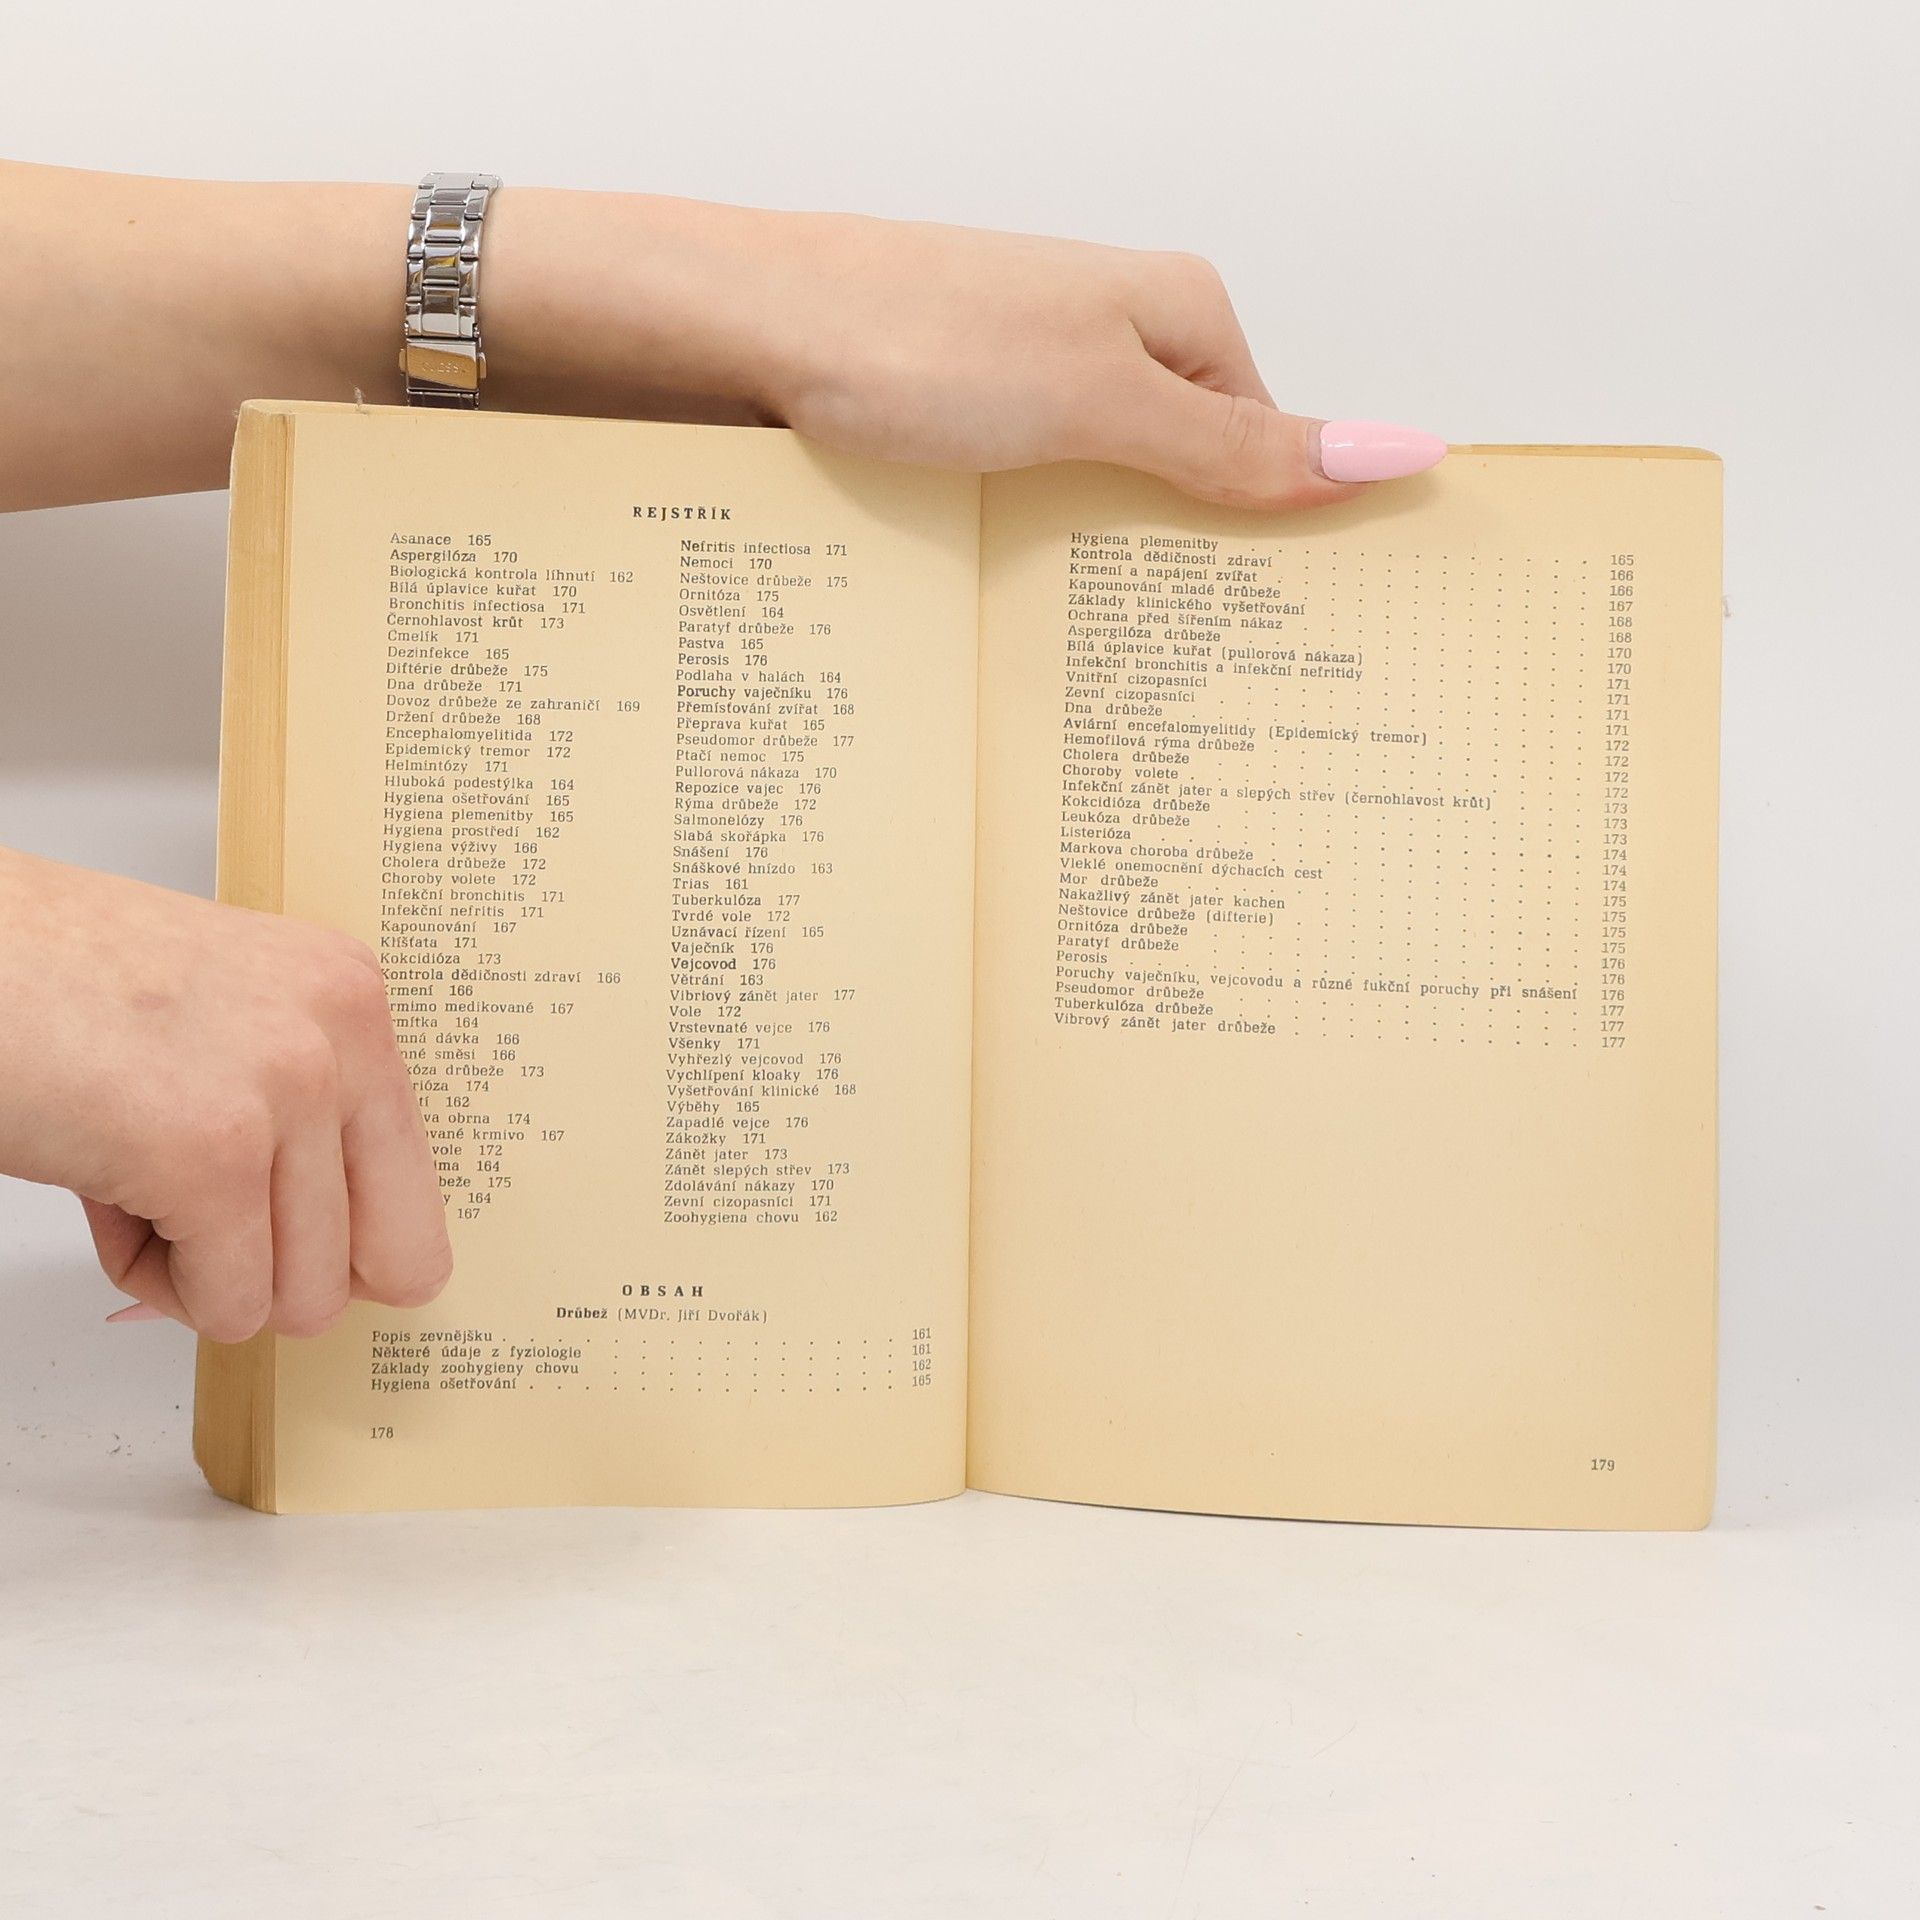 REJSTŘÍK
Asanace 165
Aspergilóza 170
Biologická kontrola líhnutí 162
Bílá úplavice kuřat 170
Bronchitis infectiosa 171
Černohlavost krůt 173
Čmelík 171
Dezinfekce 165
Diftérie drůbeže 175
Dna drůbeže 171
Dovoz drůbeže ze zahraničí 169
Držení drůbeže 168
Encephalomyelitida 172
Epidemický tremor 172
Helmintózy 171
Hluboká podestýlka 164
Hygiena ošetřování 165
Hygiena plemenitby 165
Hygiena prostředí 162
Hygiena výživy 166
Cholera drůbeže 172
Choroby volete 172
Infekční bronchitis 171
Infekční nefritis 171
Kapounování 167
Klíšťata 171
Kokcidióza 173
Kontrola dědičnosti zdraví 166
Krmení 166
rmimo medikované 167
rmítka 164
mná dávka 166
nné směsi 166
kóza drůbeže 173
rióza 174
tí 162
va obrna 174
ované krmivo 167
vole 172
ima 164
beže 175
y 164
167
Nefritis infectiosa 171
Nemoci 170
Neštovice drůbeže 175
Ornitóza 175
Osvětlení 164
Paratyf drůbeže 176
Pastva 165
Perosis 176
Podlaha v halách 164
Poruchy vaječníku 176
Přemísťování zvířat 168
Přeprava kuřat 165
Pseudomor drůbeže 177
Ptačí nemoc 175
Pullorová nákaza 170
Repozice vajec 176
Rýma drůbeže 172
Salmonelózy 176
Slabá skořápka 176
Snášení 176
Snáškové hnízdo 163
Trias 161
Tuberkulóza 177
Tvrdé vole 172
Uznávací řízení 165
Vaječník 176
Vejcovod 176
Větrání 163
Vibriový zánět jater 177
Vole 172
Vrstevnaté vejce 176
Všenky 171
Vyhřezlý vejcovod 176
Vychlípení kloaky 176
Vyšetřování klinické 168
Výběhy 165
Zapadlé vejce 176
Zákožky 171
Zánět jater 173
Zánět slepých střev 173
Zdolávání nákazy 170
Zevní cizopasníci 171
Zoohygiena chovu 162
OBSAH
Drůbež (MVDr. Jiří Dvořák)
Popis zevnějšku . . . . . . . . . . . . . . . 161
Některé údaje z fyziologie . . . . . . . . . . . 161
Základy zoohygieny chovu . . . . . . . . . . . 162
Hygiena ošetřování . . . . . . . . . . . . . . 165
178
Hygiena plemenitby . . . . . . . . . . . . . 165
Kontrola dědičnosti zdraví . . . . . . . . . . . 166
Krmení a napájení zvířat . . . . . . . . . . . . 166
Kapounování mladé drůbeže . . . . . . . . . . . 167
Základy klinického vyšetřování . . . . . . . . . . . 168
Ochrana před šířením nákaz . . . . . . . . . . . 168
Aspergilóza drůbeže . . . . . . . . . . . . . 170
Bílá úplavice kuřat (pullorová nákaza) . . . . . . . . 170
Infekční bronchitis a infekční nefritidy . . . . . . . . 171
Vnitřní cizopasníci . . . . . . . . . . . . . 171
Zevní cizopasníci . . . . . . . . . . . . . . 171
Dna drůbeže . . . . . . . . . . . . . . . 171
Aviární encefalomyelitidy (Epidemický tremor) . . . . . . 172
Hemofilová rýma drůbeže . . . . . . . . . . . . 172
Cholera drůbeže . . . . . . . . . . . . . . 172
Choroby volete . . . . . . . . . . . . . . . 172
Infekční zánět jater a slepých střev (černohlavost krůt) . . . 173
Kokcidióza drůbeže . . . . . . . . . . . . . 173
Leukóza drůbeže . . . . . . . . . . . . . . 173
Listerióza . . . . . . . . . . . . . . . . 174
Markova choroba drůbeže . . . . . . . . . . . . 174
Vleklé onemocnění dýchacích cest . . . . . . . . . . 174
Mor drůbeže . . . . . . . . . . . . . . . 175
Nakažlivý zánět jater kachen . . . . . . . . . . . 175
Neštovice drůbeže (difterie) . . . . . . . . . . . 175
Ornitóza drůbeže . . . . . . . . . . . . . . 175
Paratyf drůbeže . . . . . . . . . . . . . . 176
Perosis . . . . . . . . . . . . . . . . . 176
Poruchy vaječníku, vejcovodu a různé fukční poruchy při snášení 176
Pseudomor drůbeže . . . . . . . . . . . . . 177
Tuberkulóza drůbeže . . . . . . . . . . . . . 177
Vibrový zánět jater drůbeže . . . . . . . . . . . 177
179